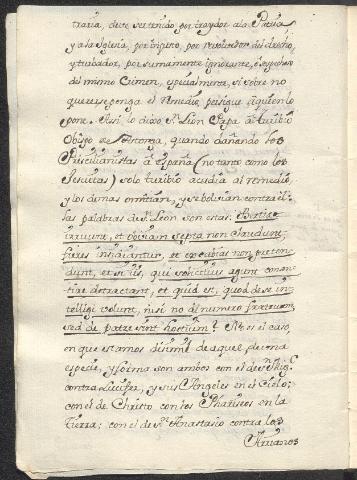 traria, deve ser tenido por traydor a la Patria
y a la Iglesia, por impio, por revolvedor del
y turbador, por sumamente ignorante, o sospechoso
del mismo Crimen, especialmente, si sobre no
querer se ponga el remedio, persigue a quien lo
pone. Assi lo dixo Sn. Leon Papa a Sto. Turibio
Obispo de Astorga, quando dañando los
Priscilianistas a España (no tanto como los
Jesuitas) solo Turibio acudia al remedio,
y los demas omitian, y se bolvian contra el:
las palabras de Sn. Leon son estas: Bestiae
irruunt, et ovium septa non claudunt,
fures insidiantur, et excubias non preten-
dunt, et si iis, qui solicitius agunt conan-
tur detractant, et quid est, quod se in-
telligi volunt, nisi no al numero fratrum,
sed de patre sint hostium? No es el caso,
en que estamos disimil de aquel, de una
especie, y forma son ambos con el de Sn. Migl.
contra Lucifer, y sus Angeles en el Cielo:
con el de Christo con los Phariseos en la
Tierra: con el de Sn. Anastasio contra los
Arrianos